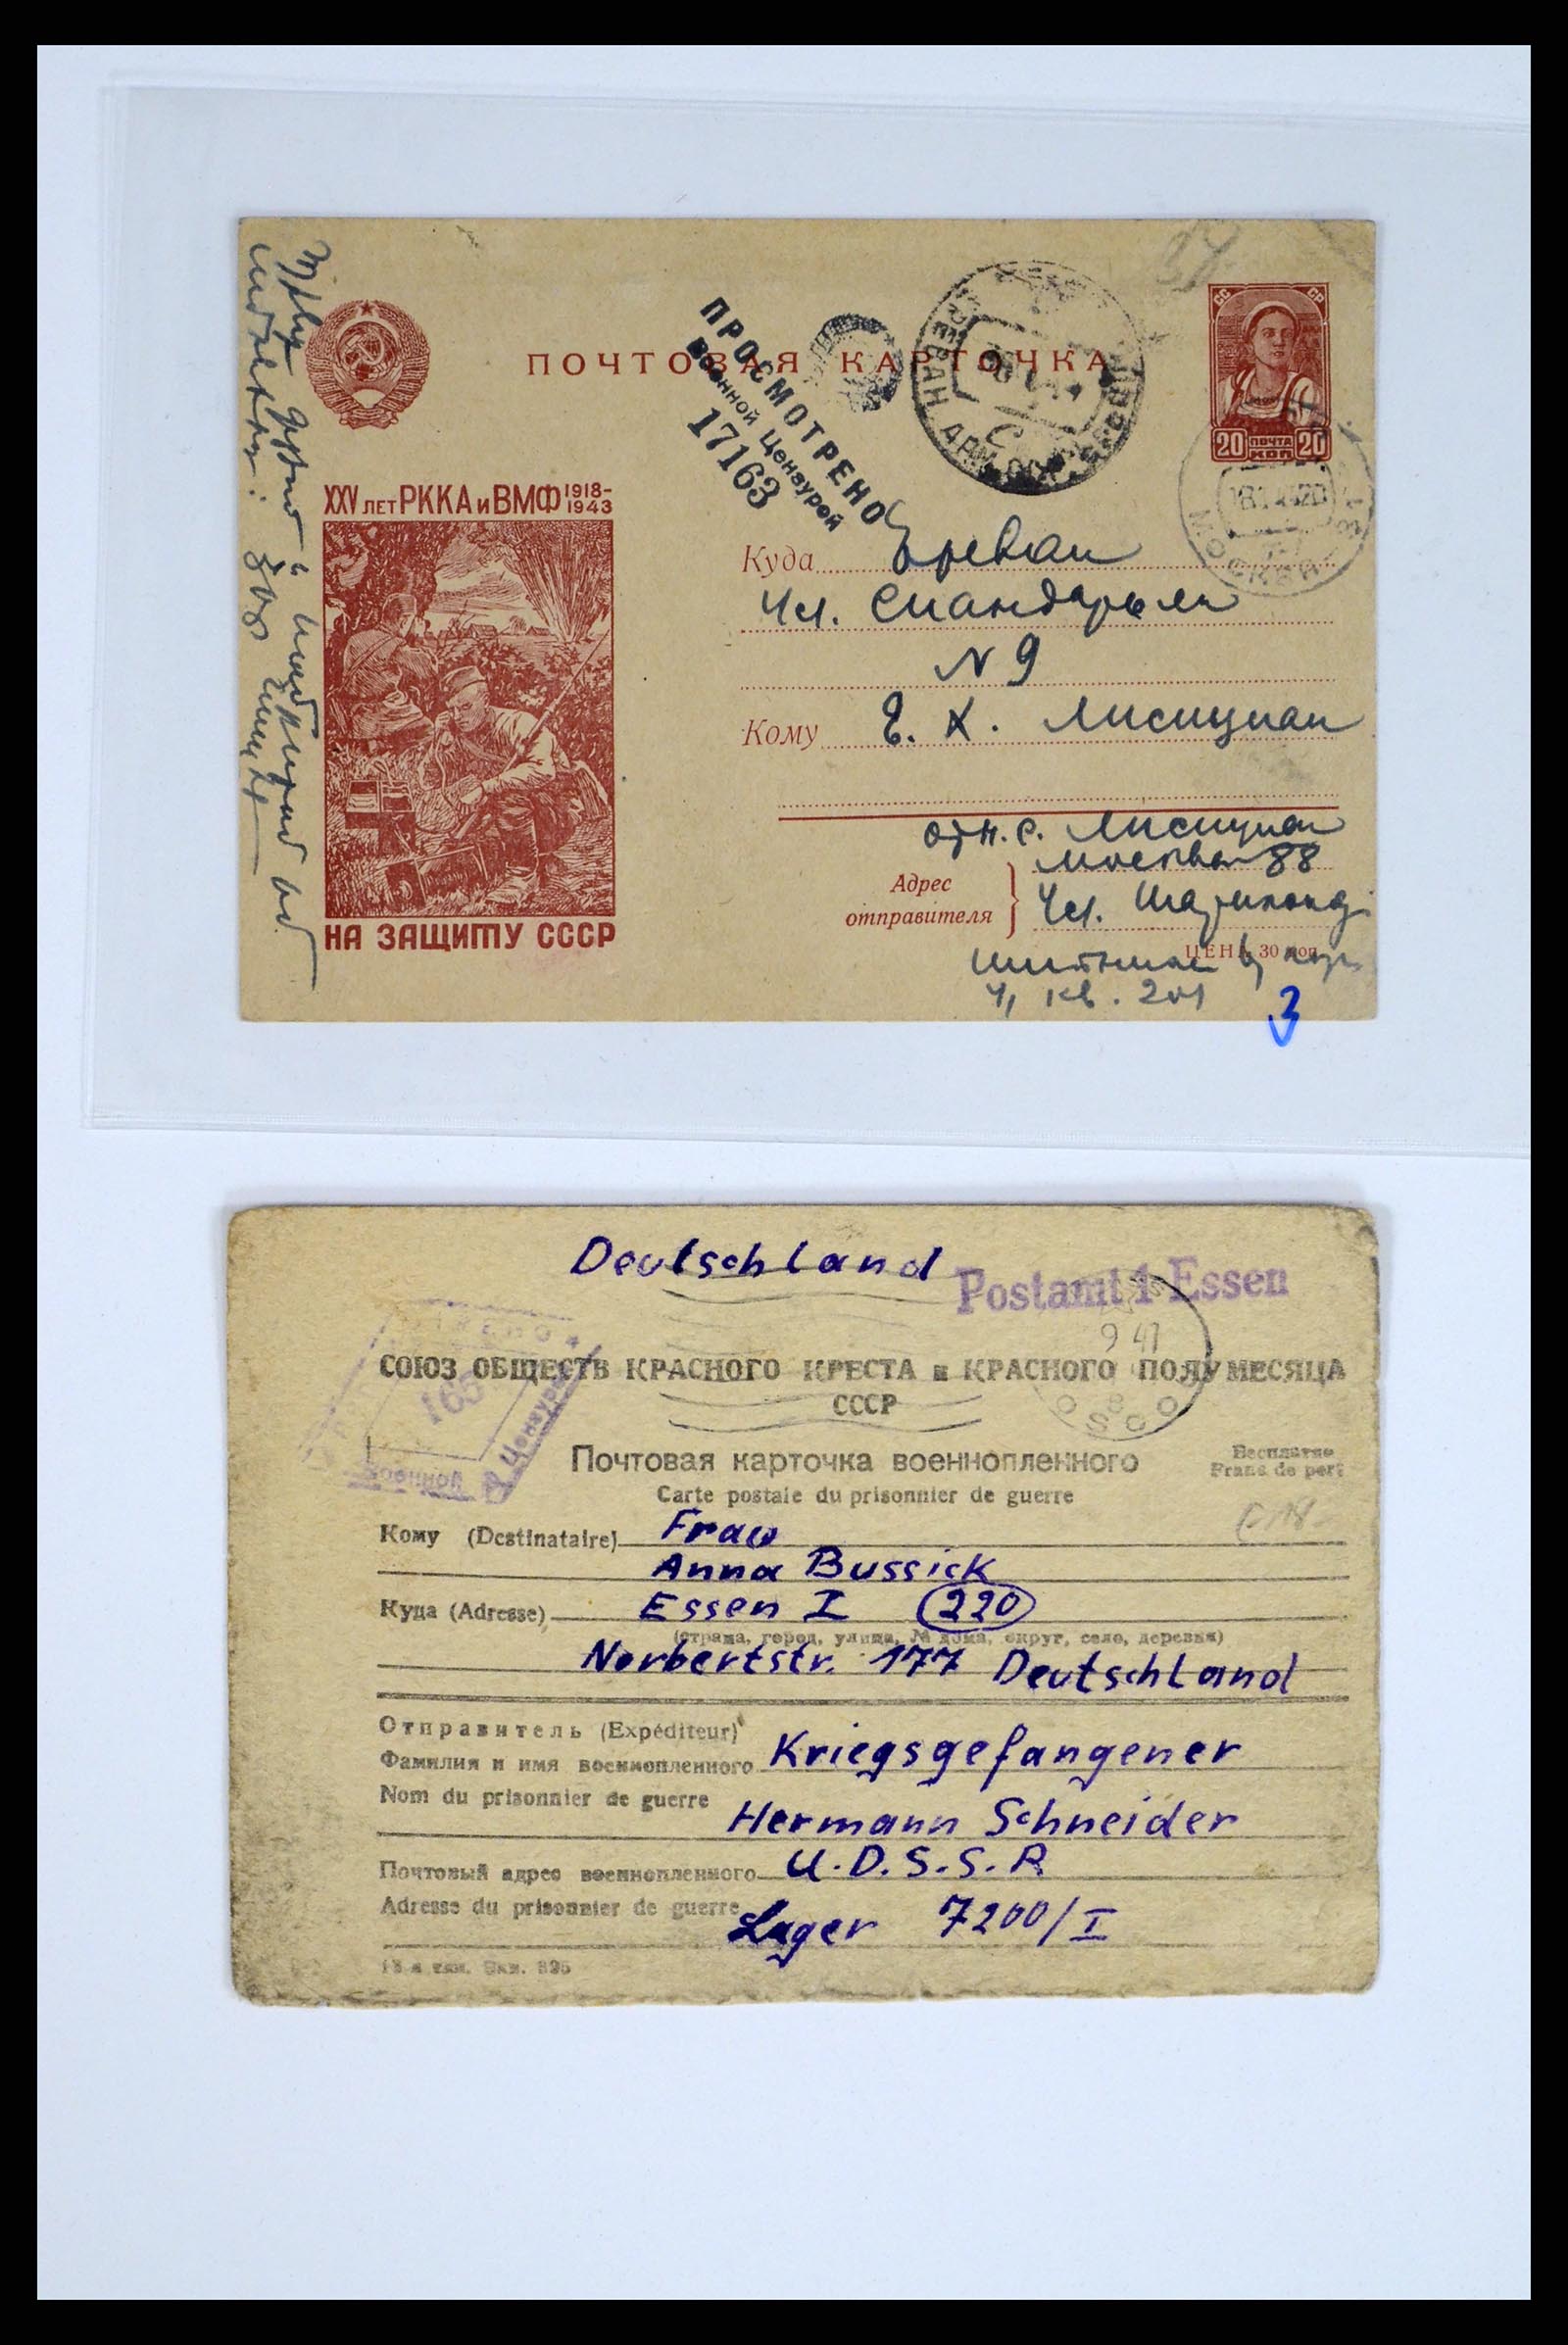 ПОЧТОВАЯ КАРТОЧКА
СС СР
20 ПОЧТА 20
КОП
ПРОСМОТРЕНО
Военной Цензурой
17163
ЕРЕВАН АРМ.ССР
МОСКВА
XXV ЛЕТ РККА и ВМФ 1918-1943
НА ЗАЩИТУ СССР
Куда Ереван
ул. Спандарьяна
N 9
Кому Е. Х. Лисициан
отп. С. Лисициан
Адрес отправителя
Москва 88
ул.
ЦЕНА 30 коп.
кв. 201
3
Deutschland
Postamt 1 Essen
9 47
СОЮЗ ОБЩЕСТВ КРАСНОГО КРЕСТА и КРАСНОГО ПОЛУМЕСЯЦА
СССР
165
Военной Цензурой
Почтовая карточка военнопленного
Carte postale du prisonnier de guerre
Бесплатно
Franc de port
Кому (Destinataire) Frau
Anna Bussick
Куда (Adresse) Essen I 220
(страна, город, улица, № дома, округ, село, деревня)
Norbertstr. 177 Deutschland
Отправитель (Expéditeur)
Фамилия и имя военнопленного Kriegsgefangener
Nom du prisonnier de guerre
Hermann Schneider
Почтовый адрес военнопленного U.D.S.S.R
Adresse du prisonnier de guerre
Lager 7200/I